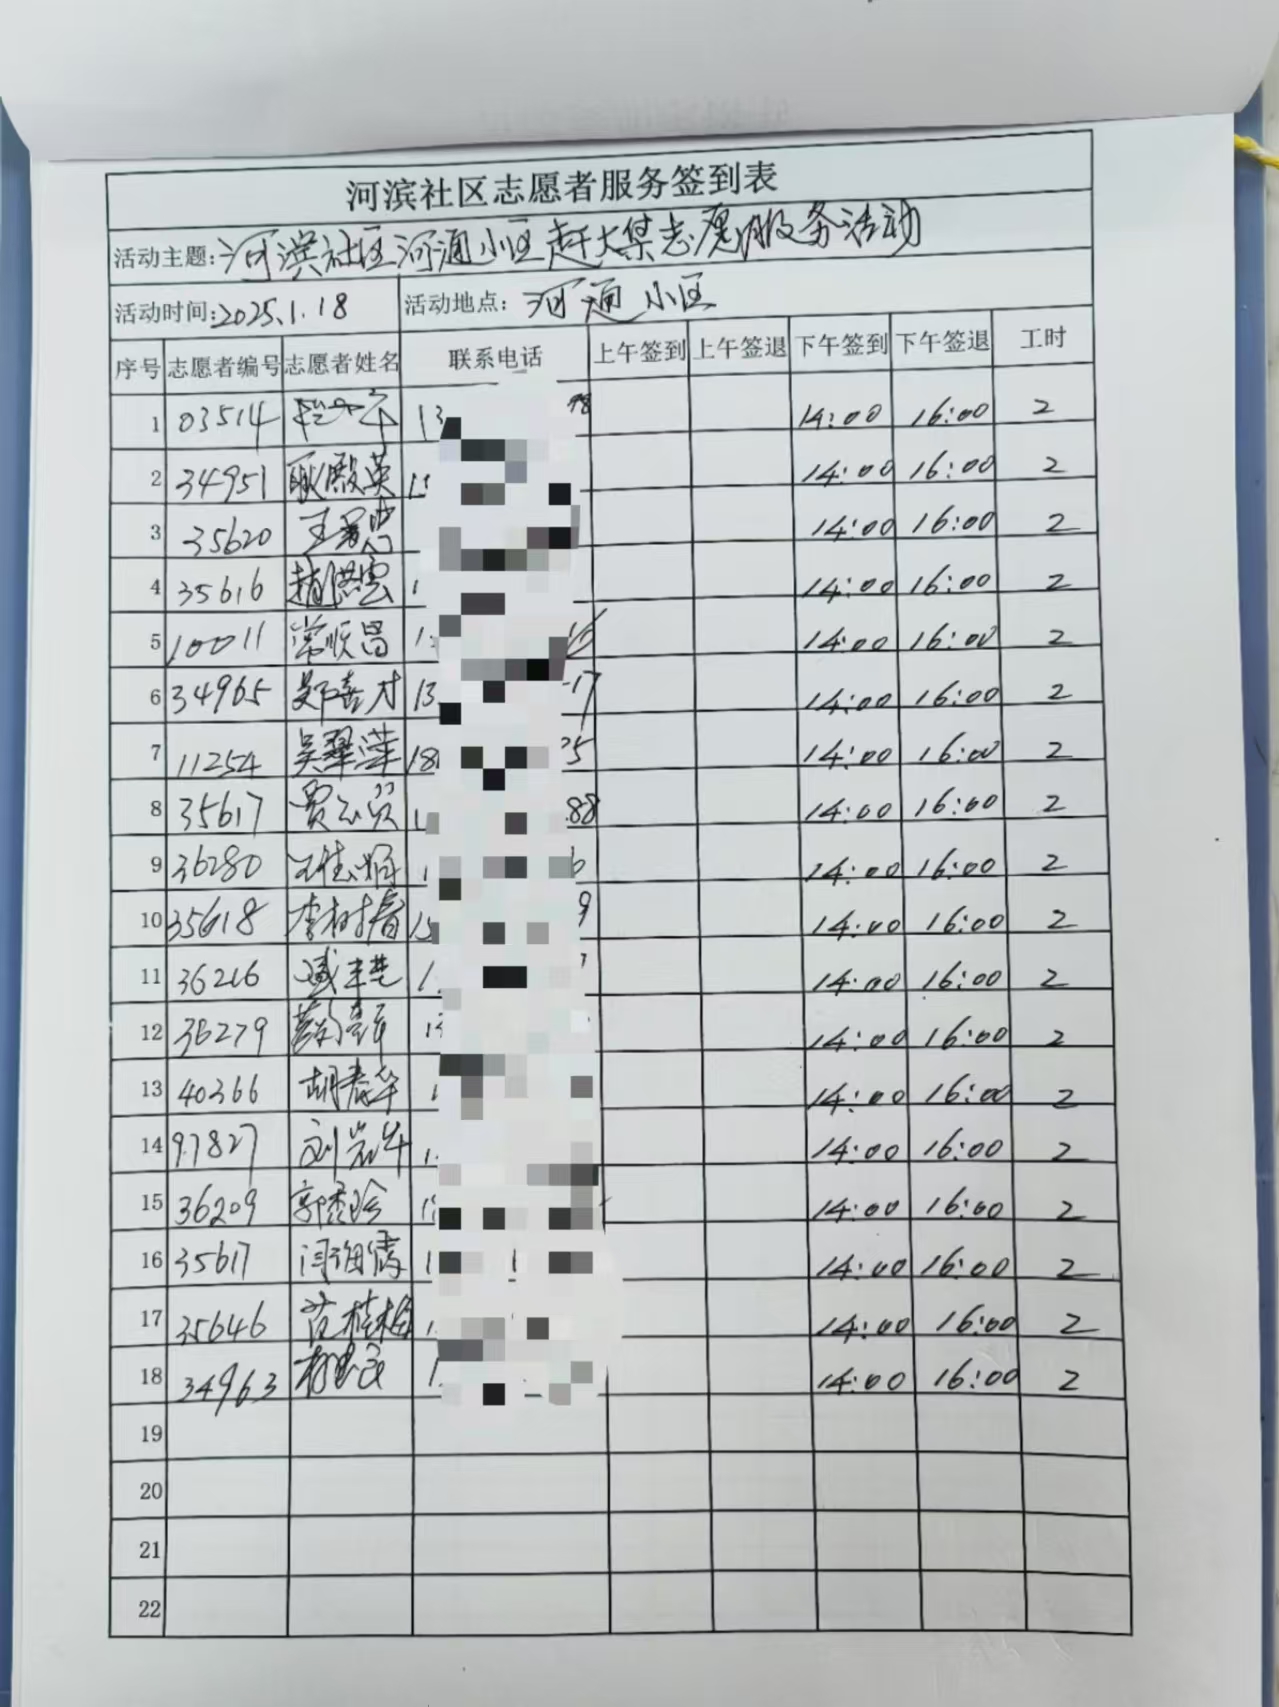 河滨社区志愿者服务签到表
活动主题:河滨社区河通小区赶大集志愿服务活动
活动时间:2025.1.18 活动地点:河通小区
序号 志愿者编号 志愿者姓名 联系电话 上午签到 上午签退 下午签到 下午签退 工时
1 03514 13 98 14:00 16:00 2
2 34951 耿殿英 14:00 16:00 2
3 35620 14:00 16:00 2
4 35616 赵洪云 1 14:00 16:00 2
5 10011 常顺昌 14:00 16:00 2
6 34965 郑喜才 13 17 14:00 16:00 2
7 11254 吴翠萍 18 25 14:00 16:00 2
8 35617 贾 1 88 14:00 16:00 2
9 36280 1 6 14:00 16:00 2
10 35618 李树春 15 9 14:00 16:00 2
11 36216 1 14:00 16:00 2
12 36279 14:00 16:00 2
13 40366 胡春华 1 14:00 16:00 2
14 97827 刘岩华 1 14:00 16:00 2
15 36209 郭秀玲 14:00 16:00 2
16 35617 1 14:00 16:00 2
17 35646 范桂梅 14:00 16:00 2
18 34963 1 14:00 16:00 2
19
20
21
22